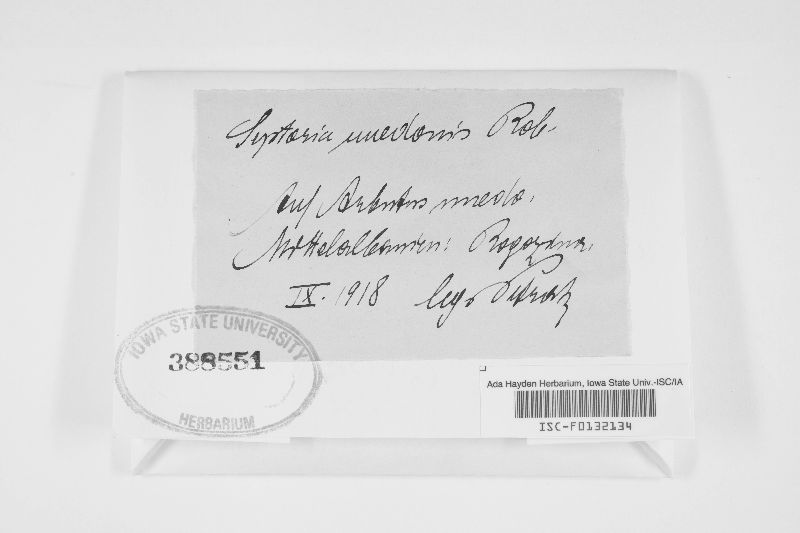 Septoria unedonis Rob.
Auf Arbutus unedo.
Mittelalbanien: Rogozina.
IX. 1918 leg. Petrak
IOWA STATE UNIVERSITY
388551
HERBARIUM
Ada Hayden Herbarium, Iowa State Univ.-ISC/IA
ISC-F0132134